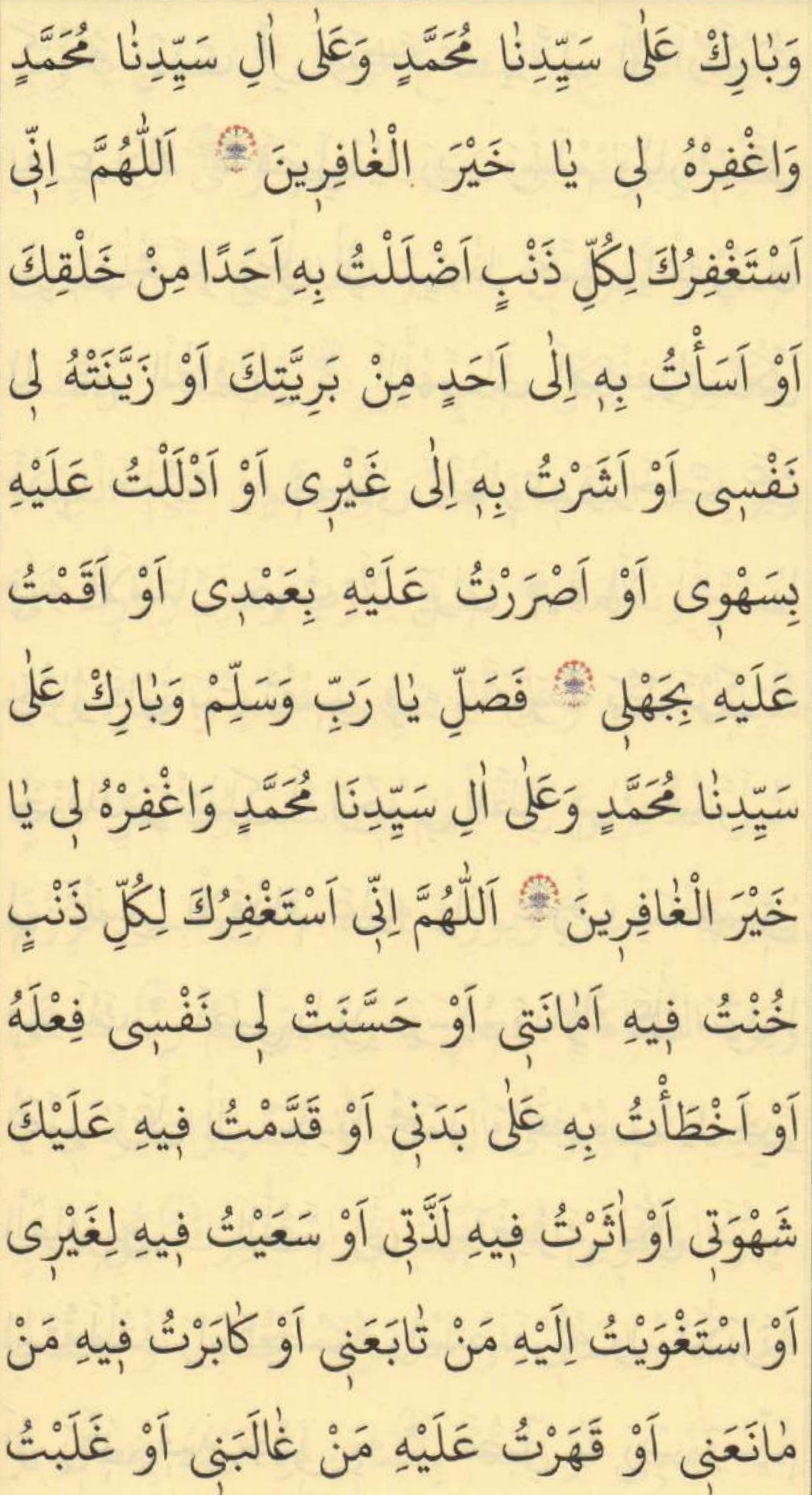 وَبٰارِكْ عَلٰى سَيِّدِنٰا مُحَمَّدٍ وَعَلٰى اٰلِ سَيِّدِنٰا مُحَمَّدٍ
وَاغْفِرْهُ لٖى يٰا خَيْرَ الْغٰافِرٖينَ اَللّٰهُمَّ اِنّٖى
اَسْتَغْفِرُكَ لِكُلِّ ذَنْبٍ اَضْلَلْتُ بِهِ اَحَدًا مِنْ خَلْقِكَ
اَوْ اَسَأْتُ بِهٖ اِلٰى اَحَدٍ مِنْ بَرِيَّتِكَ اَوْ زَيَّنَتْهُ لٖى
نَفْسٖى اَوْ اَشَرْتُ بِهٖ اِلٰى غَيْرٖى اَوْ اَدْلَلْتُ عَلَيْهِ
بِسَهْوٖى اَوْ اَصْرَرْتُ عَلَيْهِ بِعَمْدٖى اَوْ اَقَمْتُ
عَلَيْهِ بِجَهْلٖى فَصَلِّ يٰا رَبِّ وَسَلِّمْ وَبٰارِكْ عَلٰى
سَيِّدِنٰا مُحَمَّدٍ وَعَلٰى اٰلِ سَيِّدِنَا مُحَمَّدٍ وَاغْفِرْهُ لٖى يٰا
خَيْرَ الْغٰافِرٖينَ اَللّٰهُمَّ اِنّٖى اَسْتَغْفِرُكَ لِكُلِّ ذَنْبٍ
خُنْتُ فٖيهِ اَمٰانَتٖى اَوْ حَسَّنَتْ لٖى نَفْسٖى فِعْلَهُ
اَوْ اَخْطَأْتُ بِهِ عَلٰى بَدَنٖى اَوْ قَدَّمْتُ فٖيهِ عَلَيْكَ
شَهْوَتٖى اَوْ اٰثَرْتُ فٖيهِ لَذَّتٖى اَوْ سَعَيْتُ فٖيهِ لِغَيْرٖى
اَوْ اسْتَغْوَيْتُ اِلَيْهِ مَنْ تٰابَعَنٖى اَوْ كٰابَرْتُ فٖيهِ مَنْ
مٰانَعَنٖى اَوْ قَهَرْتُ عَلَيْهِ مَنْ غٰالَبَنٖى اَوْ غَلَبْتُ